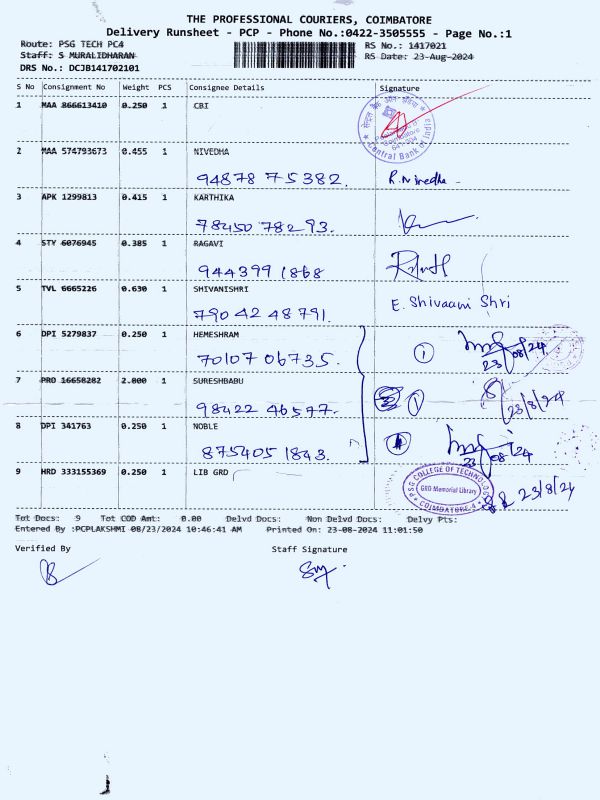 THE PROFESSIONAL COURIERS, COIMBATORE
Delivery Runsheet - PCP - Phone No.:0422-3505555 - Page No.:1
Route: PSG TECH PC4 RS No.: 1417021
Staff: S MURALIDHARAN RS Date: 23-Aug-2024
DRS No.: DCJB141702101
S No Consignment No Weight PCS Consignee Details Signature
1 MAA 866613410 0.250 1 CBI
सेन्ट्रल बैंक ऑफ इंडिया
Central Bank of India
2 MAA 574793673 0.455 1 NIVEDHA
94878 75382. R.Nivedha
3 APK 1299813 0.415 1 KARTHIKA
78450 78293.
4 STY 6076945 0.385 1 RAGAVI
944399 1868
5 TVL 6665226 0.630 1 SHIVANISHRI
790 42 48 791. E. Shivaani Shri
6 DPI 5279837 0.250 1 HEMESHRAM
70107 06735. 1 23/08/24
7 PRO 16658282 2.000 1 SURESHBABU
98422 46577. 1 23/8/24
8 DPI 341763 0.250 1 NOBLE
875405 1843. 23/08/24
9 HRD 333155369 0.250 1 LIB GRD
PSG COLLEGE OF TECHNOLOGY
GRD Memorial Library
COIMBATORE-4
23/8/24
Tot Docs: 9 Tot COD Amt: 0.00 Delvd Docs: Non Delvd Docs: Delvy Pts:
Entered By :PCPLAKSHMI 08/23/2024 10:46:41 AM Printed On: 23-08-2024 11:01:50
Verified By Staff Signature